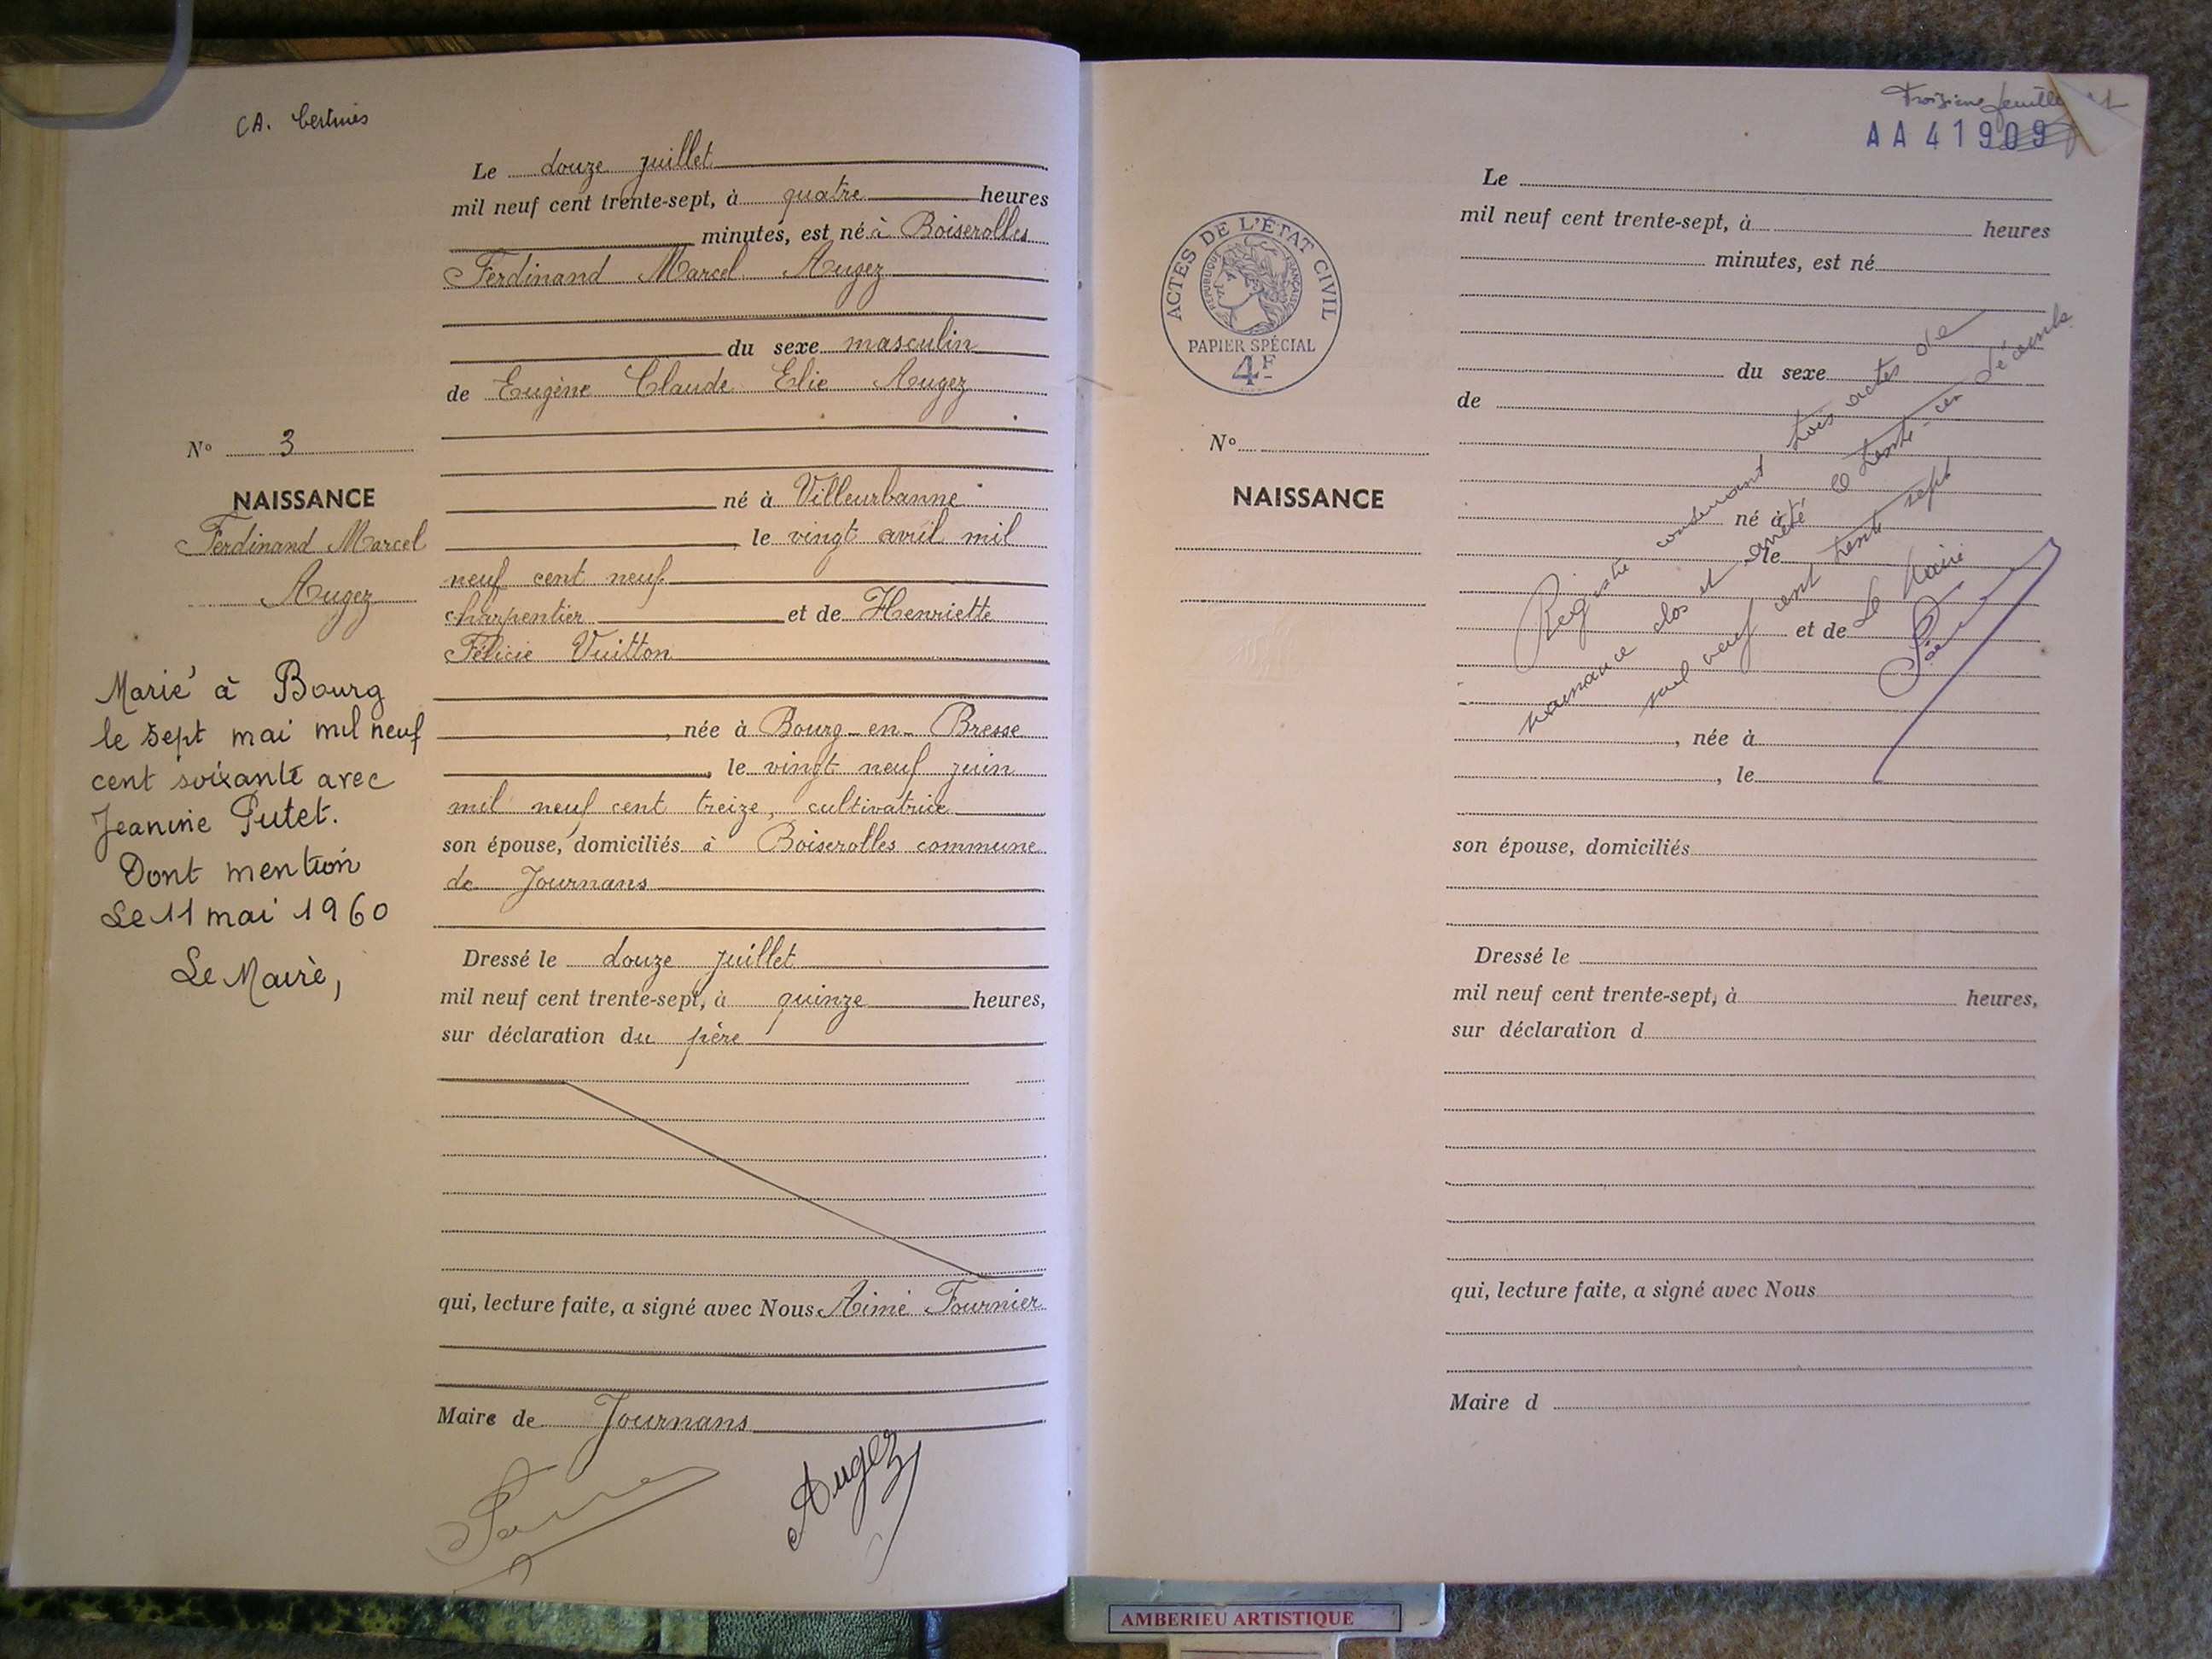 CA.
Le douze juillet
mil neuf cent trente-sept, à quatre heures
minutes, est né à Boiserolles
Ferdinand Marcel Augez
du sexe masculin
de Eugène Claude Elie Augez
né à Villeurbanne
le vingt avril mil
neuf cent neuf
charpentier et de Henriette
Félicie Vuitton
, née à Bourg-en-Bresse
, le vingt neuf juin
mil neuf cent treize, cultivatrice
son épouse, domiciliés à Boiserolles commune
de Journans
Dressé le douze juillet
mil neuf cent trente-sept, à quinze heures,
sur déclaration du père
qui, lecture faite, a signé avec Nous Aimé Fournier
Maire de Journans
Augez
N° 3
NAISSANCE
Ferdinand Marcel
Augez
Marié à Bourg
le sept mai mil neuf
cent soixante avec
Jeanine Putet.
Dont mention
Le 11 mai 1960
Le Maire,
Troisième feuillet
AA 41909
ACTES DE L'ÉTAT CIVIL
RÉPUBLIQUE FRANÇAISE
PAPIER SPÉCIAL
4F
N°
NAISSANCE
Le
mil neuf cent trente-sept, à heures
minutes, est né
du sexe
de
né à
le
et de
, née à
, le
son épouse, domiciliés
Dressé le
mil neuf cent trente-sept, à heures,
sur déclaration d
qui, lecture faite, a signé avec Nous
Maire d
Registre contenant trois actes de
naissance clos et arrêté le trente-un décembre
mil neuf cent trente sept
Le Maire
AMBERIEU ARTISTIQUE